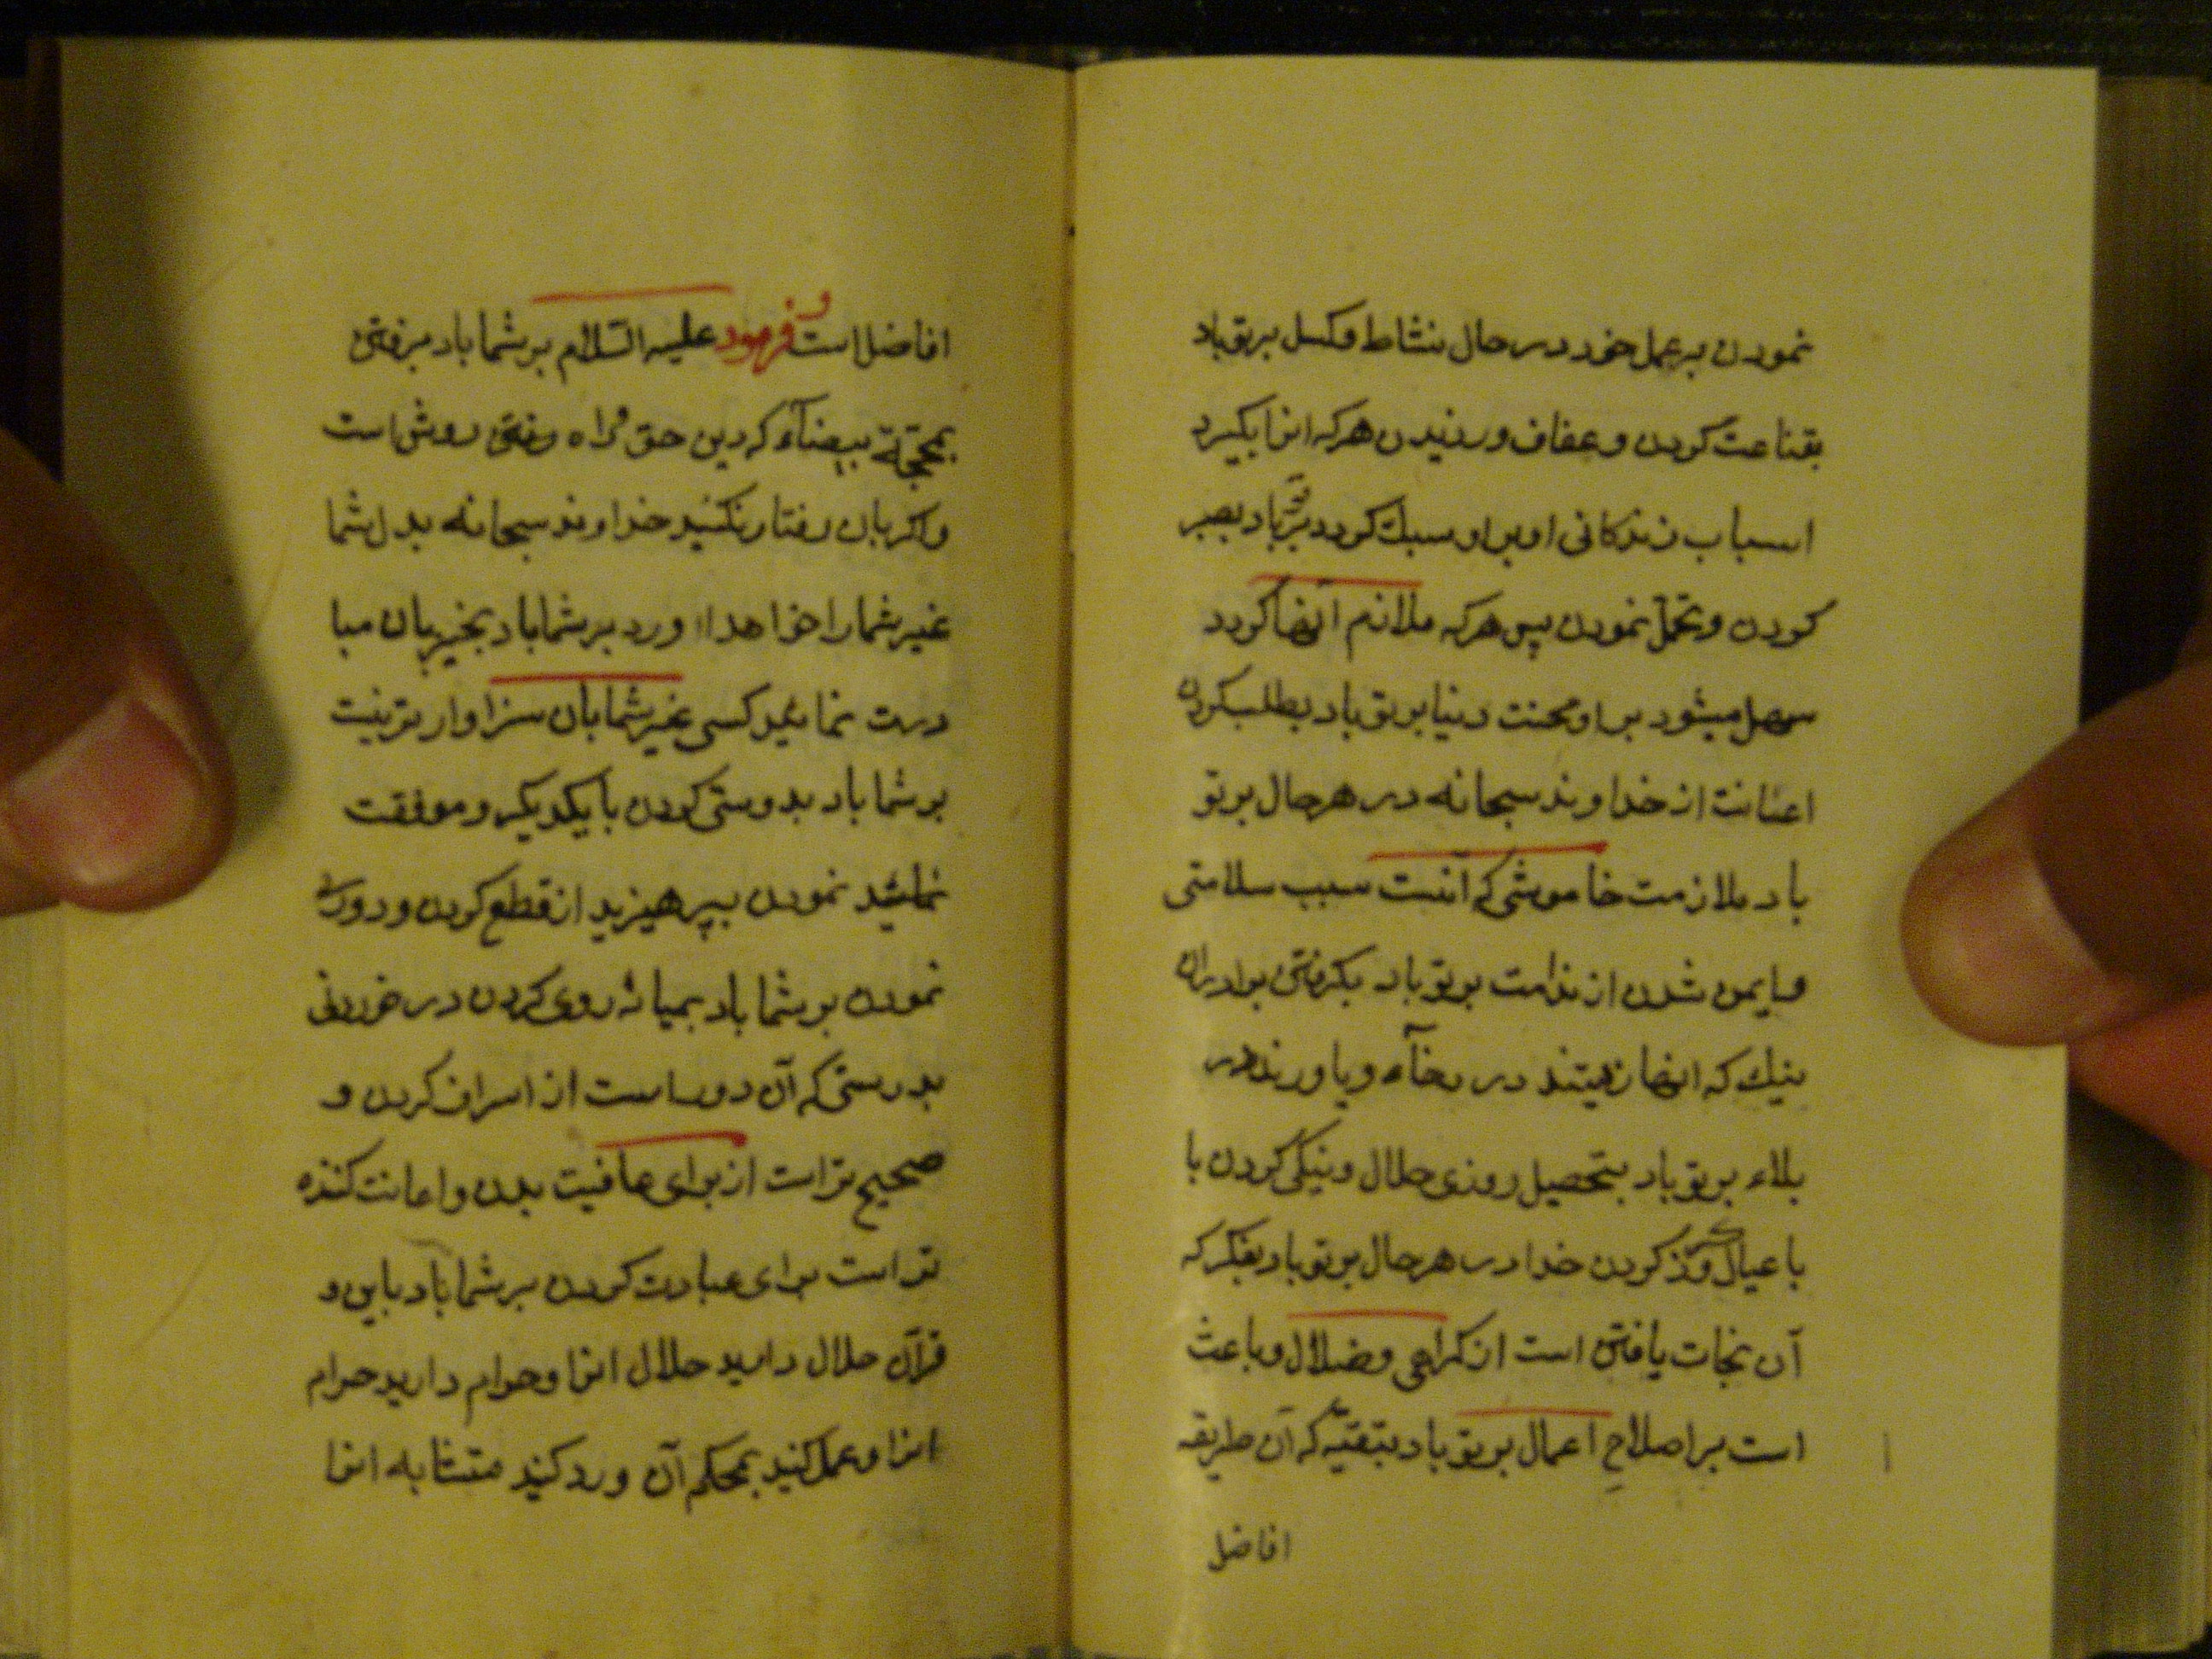 نمودن بر عمل خود در حال نشاط و کسل بر تو باد
بقناعت کردن و عفاف ورزیدن هر که انرا بگیرد
اسباب زندکانی او بر او سبك کردد بر تو باد بصبر
کردن و تحمّل نمودن پس هر که ملازم انها کردد
سهل میشود بر او محنت دنیا بر تو باد بطلب کردن
اعانت از خداوند سبحانه در هر حال بر تو
باد ملازمت خاموشی که آنست سبب سلامتی
و ایمن شدن از ندامت بر تو باد بکرفتن برادران
نیك که انها زینتند در رخآء و یاورند در
بلاء بر تو باد بتحصیل روزی حلال و نیکی کردن با
با عیال و ذکر کردن خدا در هر حال بر تو باد بفکر که
آن نجات یافتن است از کمراهی و ضلال و باعث
است بر اصلاحِ اعمال بر تو باد بتقیّه که آن طریقه
افاضل
افاضل است و فرمود علیه السّلام بر شما باد برفتن
بمحجّهٔ بیضآء که دین حق و راه رفتن روش است
و اکر بان رفتار نکنید خداوند سبحانه بدل شما
غیر شما را خواهد اورد بر شما باد بخیر بان مبا
درت نمائید کسی غیر شما بان سزاوارتر نیت
بر شما باد بدوستی کردن با یکدیکر و موفقت
نمودن بپرهیزید از قطع کردن و دوری
نمودن بر شما باد بمیانه روی کردن در خوردنی
بدرستی که آن دور است از اسراف کردن و
صحیح تر است از برای عافیت بدن و اعانت کننده
تر است برای عبادت کردن بر شما باد باین و
قرآن حلال دارید حلال انرا و حرام دارید حرام
انرا و عمل کنید بمحکم آن و رد کنید متشابه انرا